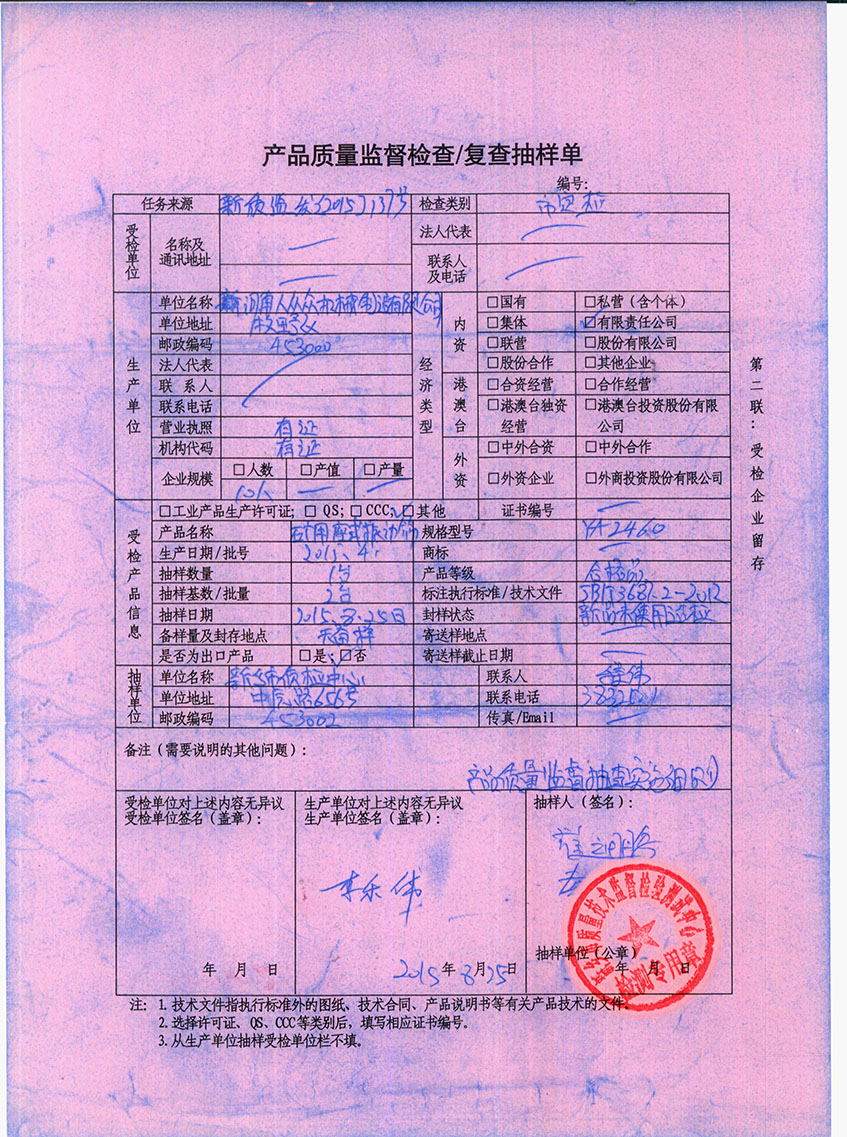 产品质量监督检查/复查抽样单
编号:
任务来源 新质监发[2015]137号 检查类别 市监检
受检单位 名称及通讯地址 法人代表
联系人及电话
生产单位 单位名称 机械制造有限公司 经济类型 内资 □国有 □私营(含个体)
单位地址 □集体 □有限责任公司
邮政编码 453000 □联营 □股份有限公司
法人代表 □股份合作 □其他企业
联系人 港澳台 □合资经营 □合作经营
联系电话 □港澳台独资经营 □港澳台投资股份有限公司
营业执照 有证
机构代码 有证 外资 □中外合资 □中外合作
企业规模 □人数 □产值 □产量 □外资企业 □外商投资股份有限公司
受检产品信息 □工业产品生产许可证; □ QS; □ CCC; □其他 证书编号
产品名称 矿用 振动筛 规格型号 YA2460
生产日期/批号 2015.4. 商标
抽样数量 1台 产品等级 合格品
抽样基数/批量 2台 标注执行标准/技术文件 JB/T3687.2-2012
抽样日期 2015.8.25日 封样状态 新品未使用
备样量及封存地点 无备样 寄送样地点
是否为出口产品 □是; □否 寄送样截止日期
抽样单位 单位名称 质检中心 联系人
单位地址 656号 联系电话
邮政编码 453002 传真/Email
备注(需要说明的其他问题):
产品质量监督抽查实施细则
受检单位对上述内容无异议
受检单位签名(盖章):
年 月 日
生产单位对上述内容无异议
生产单位签名(盖章):
李乐伟
2015年8月25日
抽样人(签名):
抽样单位(公章)
年 月 日
质量技术监督检验测试中心
检测专用章
注: 1.技术文件指执行标准外的图纸、技术合同、产品说明书等有关产品技术的文件。
2.选择许可证、QS、CCC等类别后,填写相应证书编号。
3.从生产单位抽样受检单位栏不填。
第二联:受检企业留存